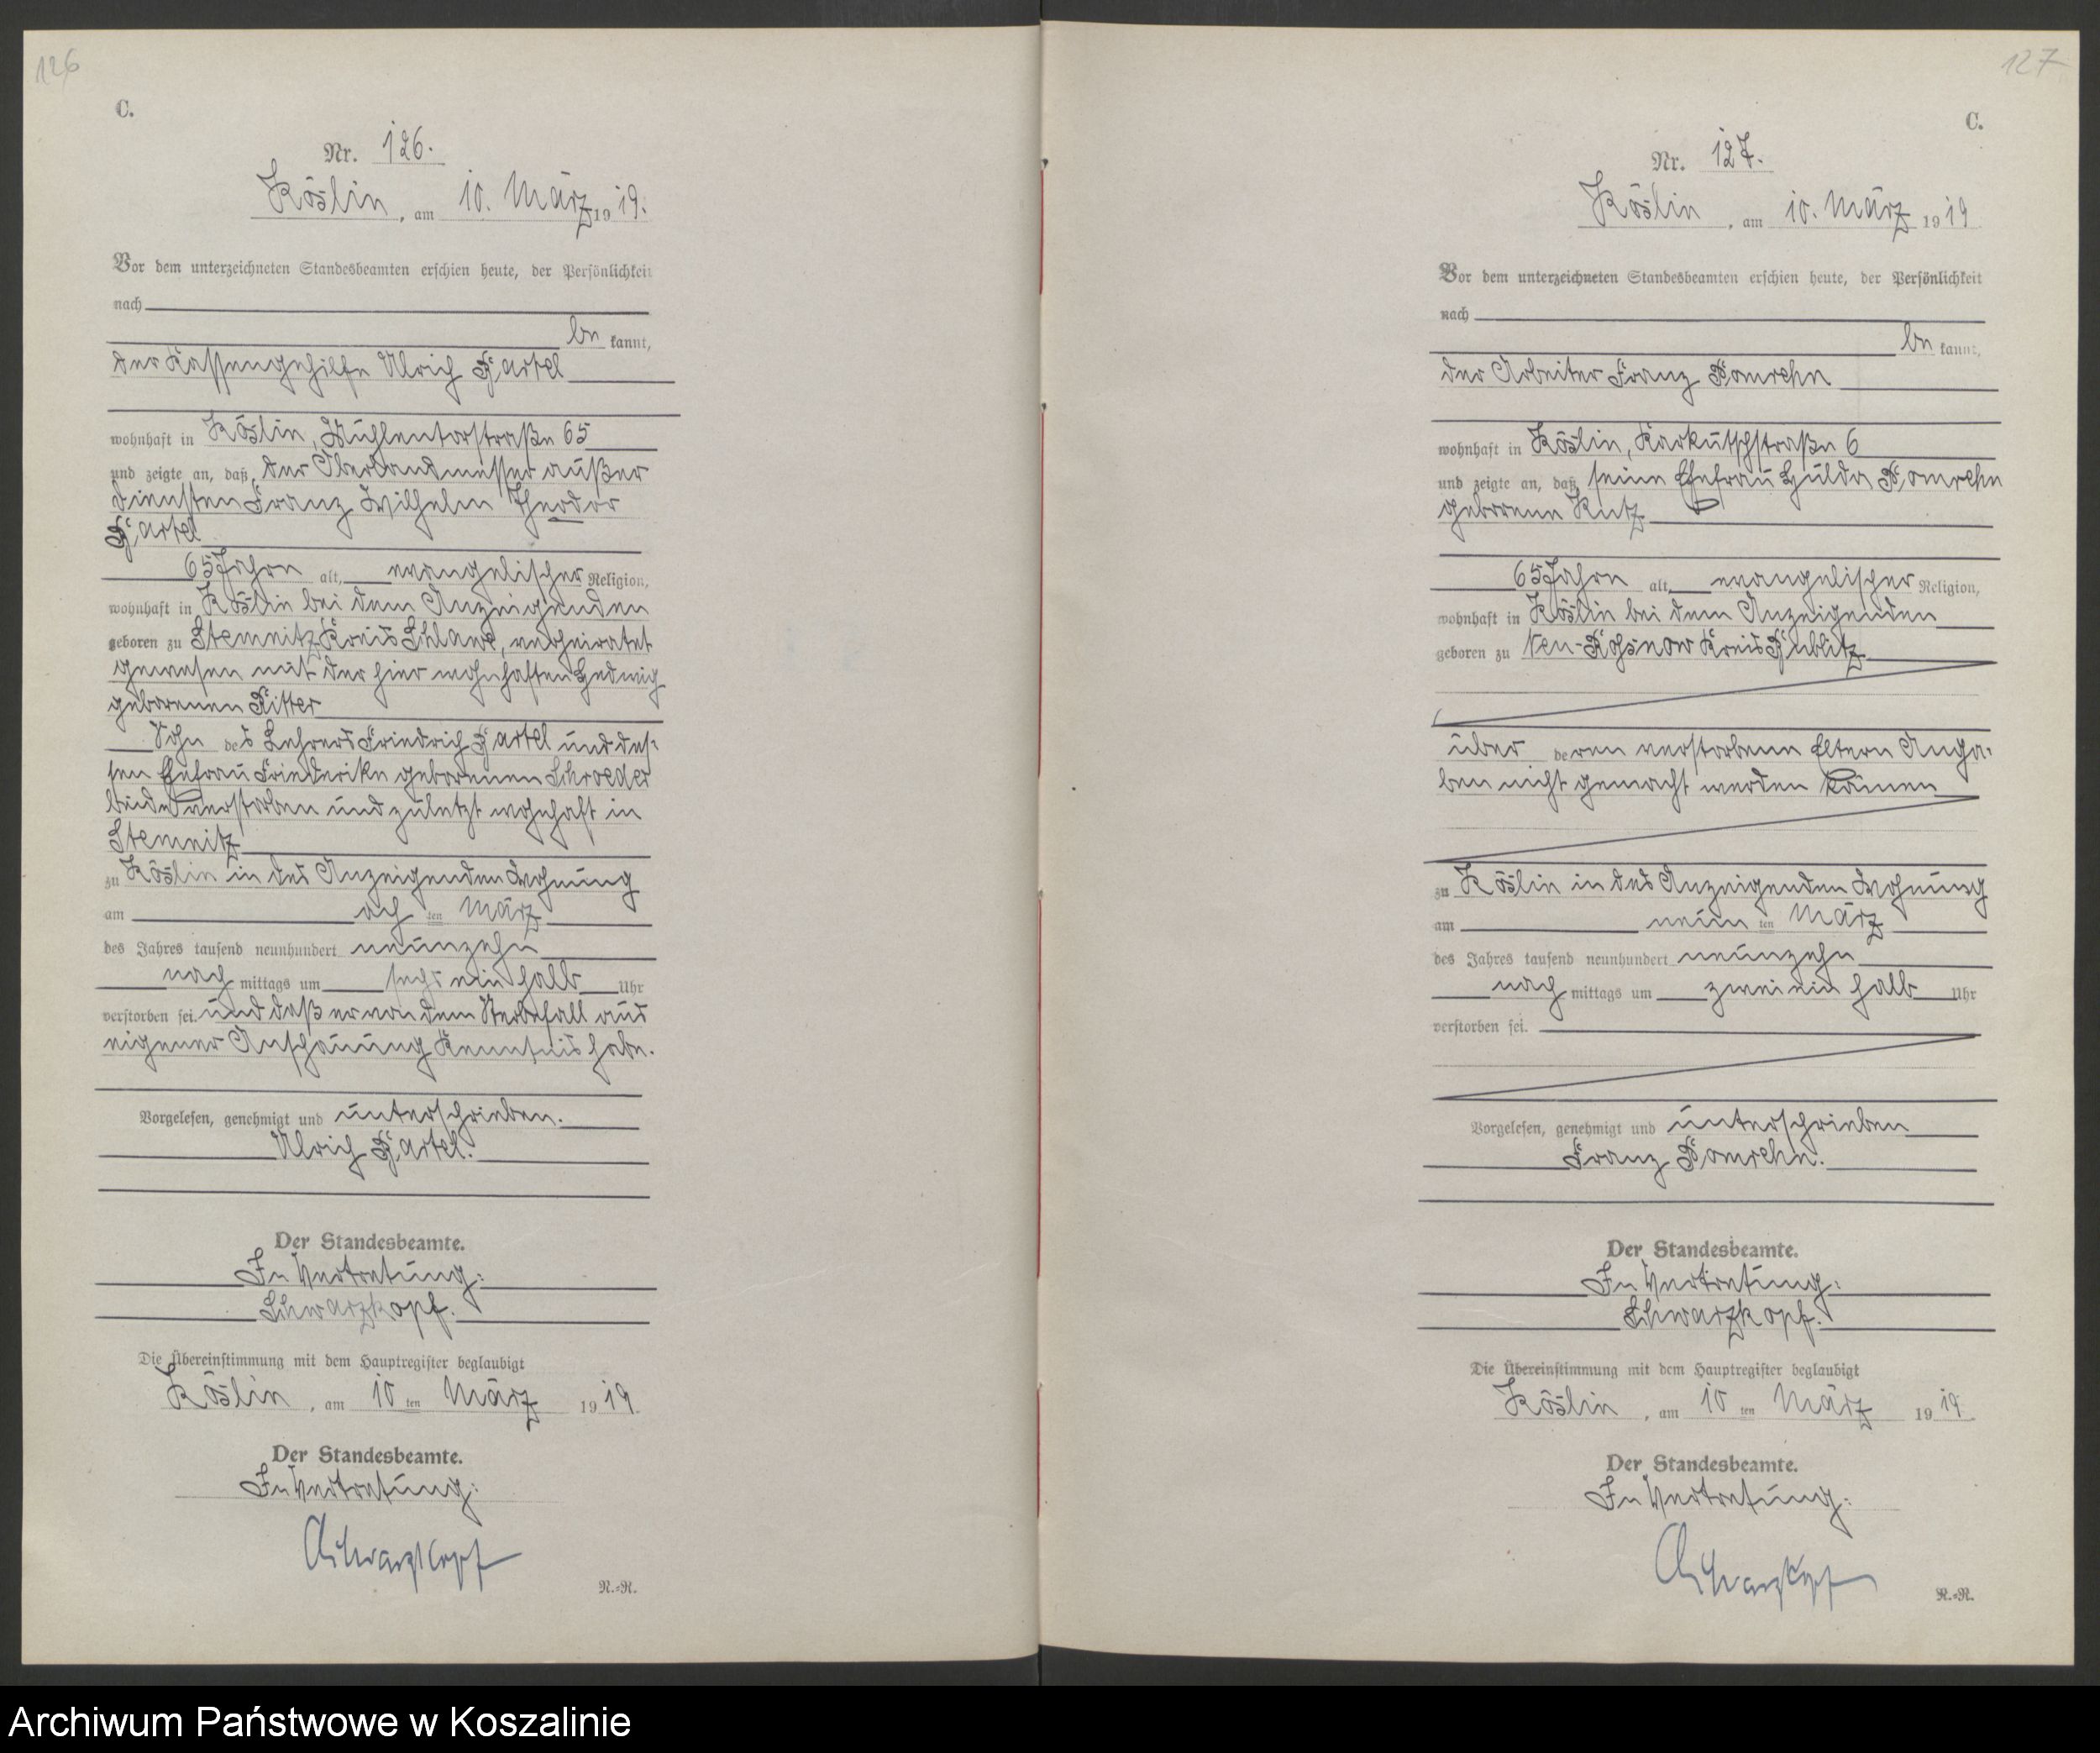 126
C.
Nr. 126.
Köslin, am 10. März 1919.
Vor dem unterzeichneten Standesbeamten erschien heute, der Persönlichkeit
nach
be kannt,
der Kassengehilfe Ulrich Bartel
wohnhaft in Köslin, Mühlentorstraße 65
und zeigte an, daß der Oberlandmesser außer
Diensten Franz Wilhelm Theodor
Bartel
65 Jahre alt, evangelischer Religion,
wohnhaft in Köslin bei dem Anzeigenden
geboren zu Stemnitz Kreis Schlawe, verheiratet
gewesen mit der hier wohnhaften Hedwig
geborenen Ritter
Sohn des Lehrers Friedrich Bartel und des-
sen Ehefrau Friederike geborenen Schroeder
beide verstorben und zuletzt wohnhaft in
Stemnitz
zu Köslin in des Anzeigenden Wohnung
am achten März
des Jahres tausend neunhundert neunzehn
nach mittags um sechs ein halb Uhr
verstorben sei. und daß er von dem Sterbefall aus
eigener Anschauung Kenntnis habe.
Vorgelesen, genehmigt und unterschrieben.
Ulrich Bartel.
Der Standesbeamte.
In Vertretung:
Schwarzkopf.
Die Übereinstimmung mit dem Hauptregister beglaubigt
Köslin, am 10ten März 1919.
Der Standesbeamte.
In Vertretung:
Schwarzkopf
R.-R.
127
C.
Nr. 127.
Köslin, am 10. März 1919
Vor dem unterzeichneten Standesbeamten erschien heute, der Persönlichkeit
nach
be kannt,
der Arbeiter Franz Pomrehn
wohnhaft in Köslin, Karkutschstraße 6
und zeigte an, daß seine Ehefrau Hulda Pomrehn
geborene Kutz
65 Jahre alt, evangelischer Religion,
wohnhaft in Köslin bei dem Anzeigenden
geboren zu Neu- Kreis Bublitz
über deren verstorbene Eltern Anga-
ben nicht gemacht werden können
zu Köslin in des Anzeigenden Wohnung
am neunten März
des Jahres tausend neunhundert neunzehn
nach mittags um zwei ein halb Uhr
verstorben sei.
Vorgelesen, genehmigt und unterschrieben
Franz Pomrehn.
Der Standesbeamte.
In Vertretung:
Schwarzkopf.
Die Übereinstimmung mit dem Hauptregister beglaubigt
Köslin, am 10ten März 1919
Der Standesbeamte.
In Vertretung:
Schwarzkopf
R.-R.
Archiwum Państwowe w Koszalinie